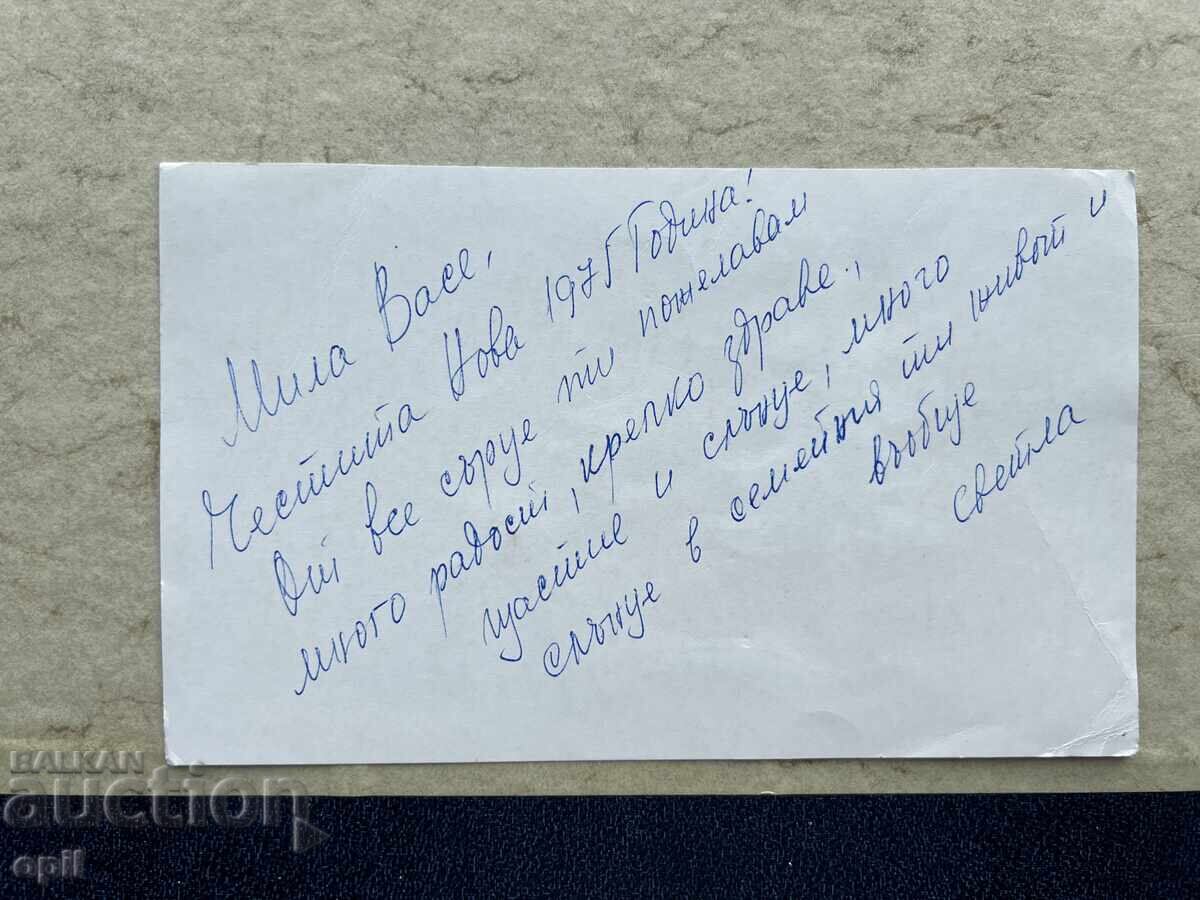 Мила Васе,
Честита Нова 1975 Година!
От все сърце ти пожелавам
много радост, крепко здраве,
щастие и слънце, много
слънце в семейния ти живот и
въобще
Светла
BALKAN
auction
opil